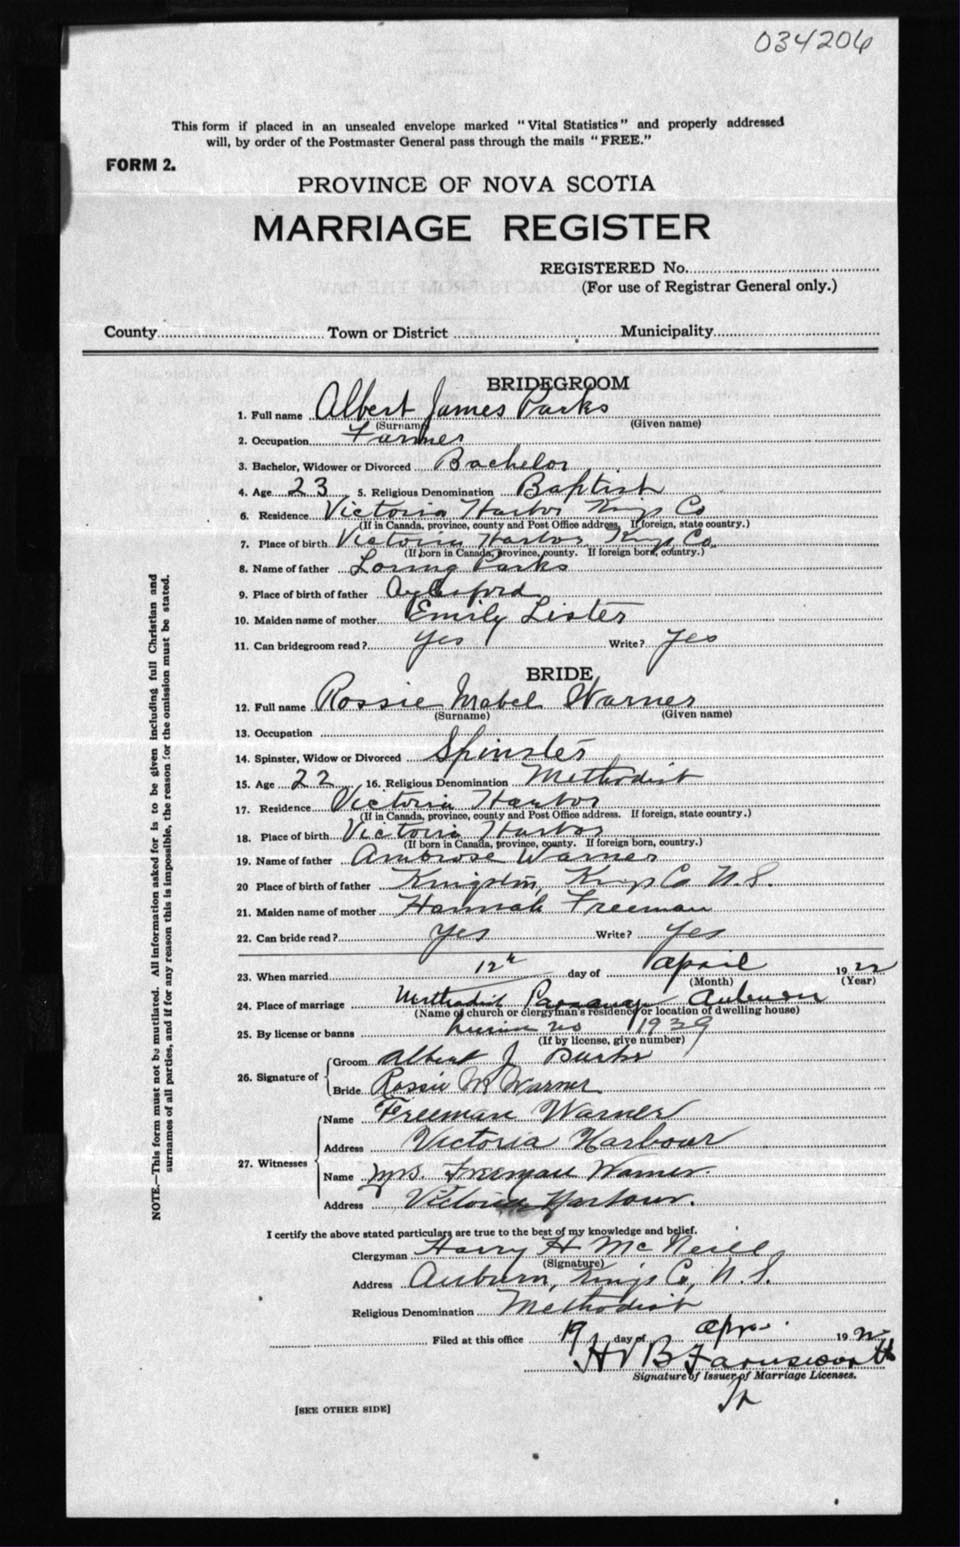 034206
This form if placed in an unsealed envelope marked "Vital Statistics" and properly addressed
will, by order of the Postmaster General pass through the mails "FREE."
FORM 2.
PROVINCE OF NOVA SCOTIA
MARRIAGE REGISTER
REGISTERED No.
(For use of Registrar General only.)
County Town or District Municipality
BRIDEGROOM
1. Full name Albert James Parks
(Surname) (Given name)
2. Occupation Farmer
3. Bachelor, Widower or Divorced Bachelor
4. Age 23 5. Religious Denomination Baptist
6. Residence Victoria Harbor Kings Co
(If in Canada, province, county and Post Office address. If foreign, state country.)
7. Place of birth Victoria Harbor Kings Co
(If born in Canada, province, county. If foreign born, country.)
8. Name of father Loring Parks
9. Place of birth of father Aylesford
10. Maiden name of mother Emily Lister
11. Can bridegroom read? Yes Write? Yes
BRIDE
12. Full name Rossie Mabel Warner
(Surname) (Given name)
13. Occupation
14. Spinster, Widow or Divorced Spinster
15. Age 22 16. Religious Denomination Methodist
17. Residence Victoria Harbor
(If in Canada, province, county and Post Office address. If foreign, state country.)
18. Place of birth Victoria Harbor
(If born in Canada, province, county. If foreign born, country.)
19. Name of father Ambrose Warner
20 Place of birth of father Kingston, Kings Co N.S.
21. Maiden name of mother Hannah Freeman
22. Can bride read? Yes Write? Yes
23. When married 12th day of April 1922
(Month) (Year)
24. Place of marriage Methodist Parsonage Auburn
(Name of church or clergyman's residence or location of dwelling house)
25. By license or banns License no 11939
(If by license, give number)
26. Signature of Groom Albert J Parks
Bride Rossie M Warner
27. Witnesses Name Freeman Warner
Address Victoria Harbour
Name Mrs. Freeman Warner.
Address Victoria Harbour.
I certify the above stated particulars are true to the best of my knowledge and belief.
Clergyman Harry H McNeill
(Signature)
Address Auburn, Kings Co, N.S.
Religious Denomination Methodist
Filed at this office 19 day of Apr. 1922
H V B Farnsworth
Signature of Issuer of Marriage Licenses.
[SEE OTHER SIDE]
NOTE.—This form must not be mutilated. All information asked for is to be given including full Christian and
surnames of all parties, and if for any reason this is impossible, the reason for the omission must be stated.